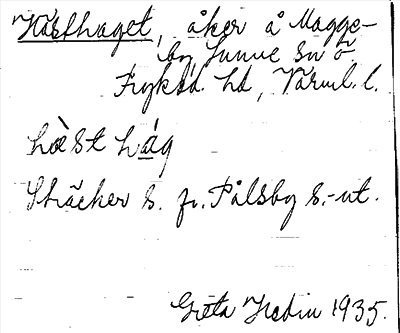 Hästhaget, åker å Magge-
by, Sunne sn ö.
Fryksd. hd, Värml. l.
hὰst hág
Stråcker s. fr. Pålsby s.-ut.
Greta Hedin 1935.